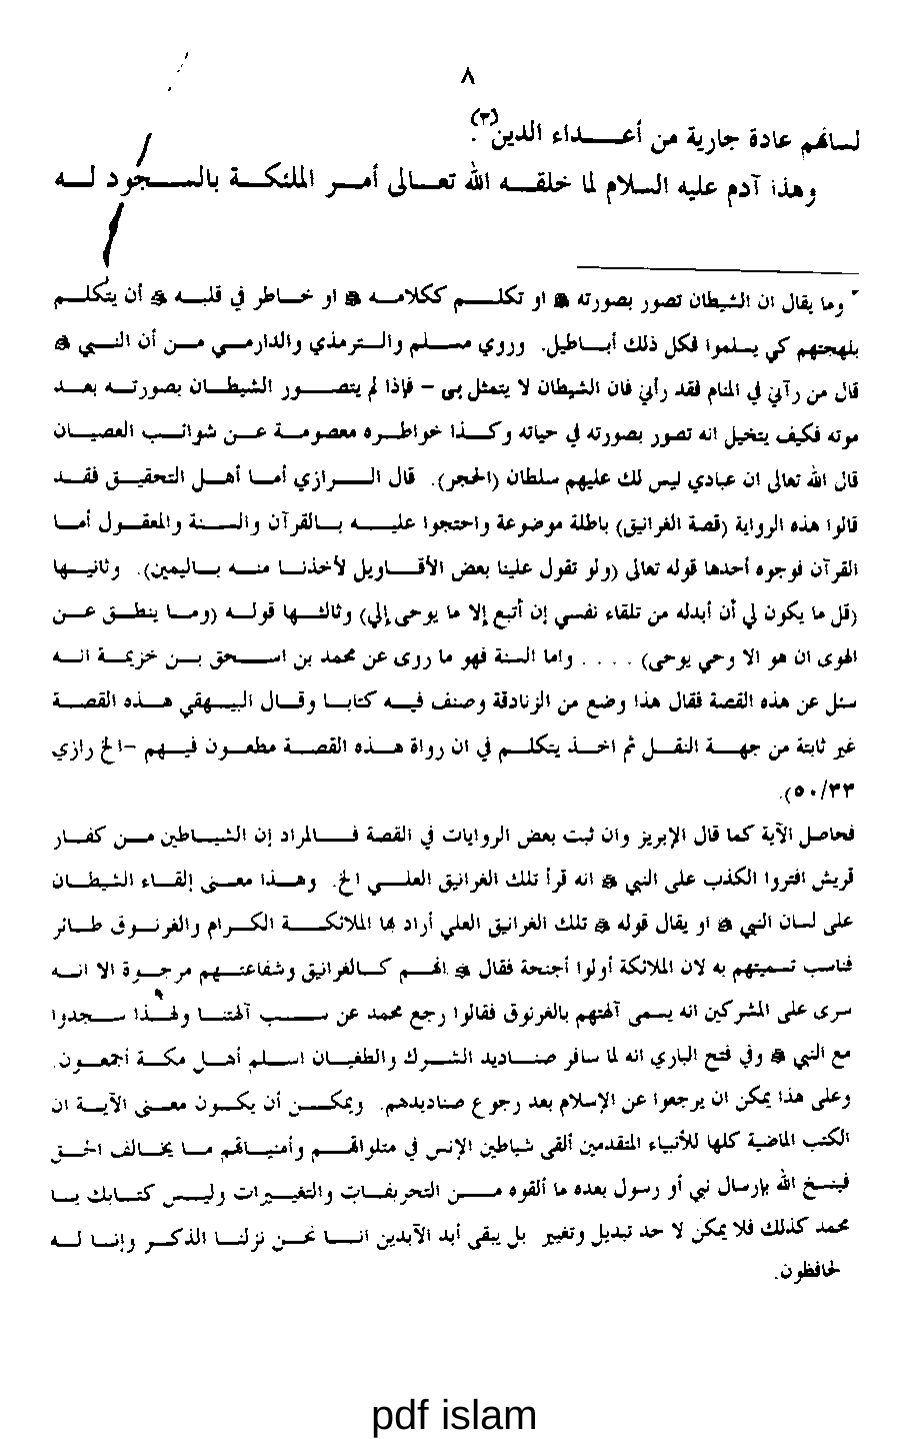 ٨
لسانهم عادة جارية من أعداء الدين(٣).
وهذا آدم عليه السلام لما خلقه الله تعالى أمر الملئكة بالسجود له
وما يقال ان الشيطان تصور بصورته ﷺ او تكلم ككلامه ﷺ او خاطر في قلبه ﷺ أن يتكلم
بلهجتهم كي يسلموا فكل ذلك أباطيل. وروي مسلم والترمذي والدارمي من أن النبي ﷺ
قال من رآني في المنام فقد رأني فان الشيطان لا يتمثل بى – فإذا لم يتصور الشيطان بصورته بعد
موته فكيف يتخيل انه تصور بصورته في حياته وكذا خواطره معصومة عن شوائب العصيان
قال الله تعالى ان عبادي ليس لك عليهم سلطان (الحجر). قال الرازي أما أهل التحقيق فقد
قالوا هذه الرواية (قصة الغرانيق) باطلة موضوعة واحتجوا عليه بالقرآن والسنة والمعقول أما
القرآن فوجوه أحدها قوله تعالى (ولو تقول علينا بعض الأقاويل لأخذنا منه باليمين). وثانيها
(قل ما يكون لي أن أبدله من تلقاء نفسي إن أتبع إلا ما يوحى إلي) وثالثها قوله (وما ينطق عن
الهوى ان هو الا وحي يوحى) . . . . واما السنة فهو ما روى عن محمد بن اسحق بن خزيمة انه
سئل عن هذه القصة فقال هذا وضع من الزنادقة وصنف فيه كتابا وقال البيهقي هذه القصة
غير ثابتة من جهة النقل ثم اخذ يتكلم في ان رواة هذه القصة مطعون فيهم –الخ رازي
٥٠/٢٣).
فحاصل الآية كما قال الإبريز وان ثبت بعض الروايات في القصة فالمراد إن الشياطين من كفار
قريش افتروا الكذب على النبي ﷺ انه قرأ تلك الغرانيق العلي الخ. وهذا معنى إلقاء الشيطان
على لسان النبي ﷺ او يقال قوله ﷺ تلك الغرانيق العلي أراد بها الملائكة الكرام والغرنوق طائر
فناسب تسميتهم به لان الملائكة أولوا أجنحة فقال ﷺ انهم كالغرانيق وشفاعتهم مرجوة الا انه
سرى على المشركين انه يسمى آلهتهم بالغرنوق فقالوا رجع محمد عن سب آلهتنا ولهذا سجدوا
مع النبي ﷺ وفي فتح الباري انه لما سافر صناديد الشرك والطغيان اسلم أهل مكة أجمعون.
وعلى هذا يمكن ان يرجعوا عن الإسلام بعد رجوع صناديدهم. ويمكن أن يكون معنى الآية ان
الكتب الماضية كلها للأنبياء المتقدمين ألقى شياطين الإنس في متلواتهم وأمنياتهم ما يخالف الحق
فينسخ الله بإرسال نبي أو رسول بعده ما ألقوه من التحريفات والتغييرات وليس كتابك يا
محمد كذلك فلا يمكن لا حد تبديل وتغيير بل يبقى أبد الآبدين انا نحن نزلنا الذكر وإنا له
لحافظون.
pdf islam